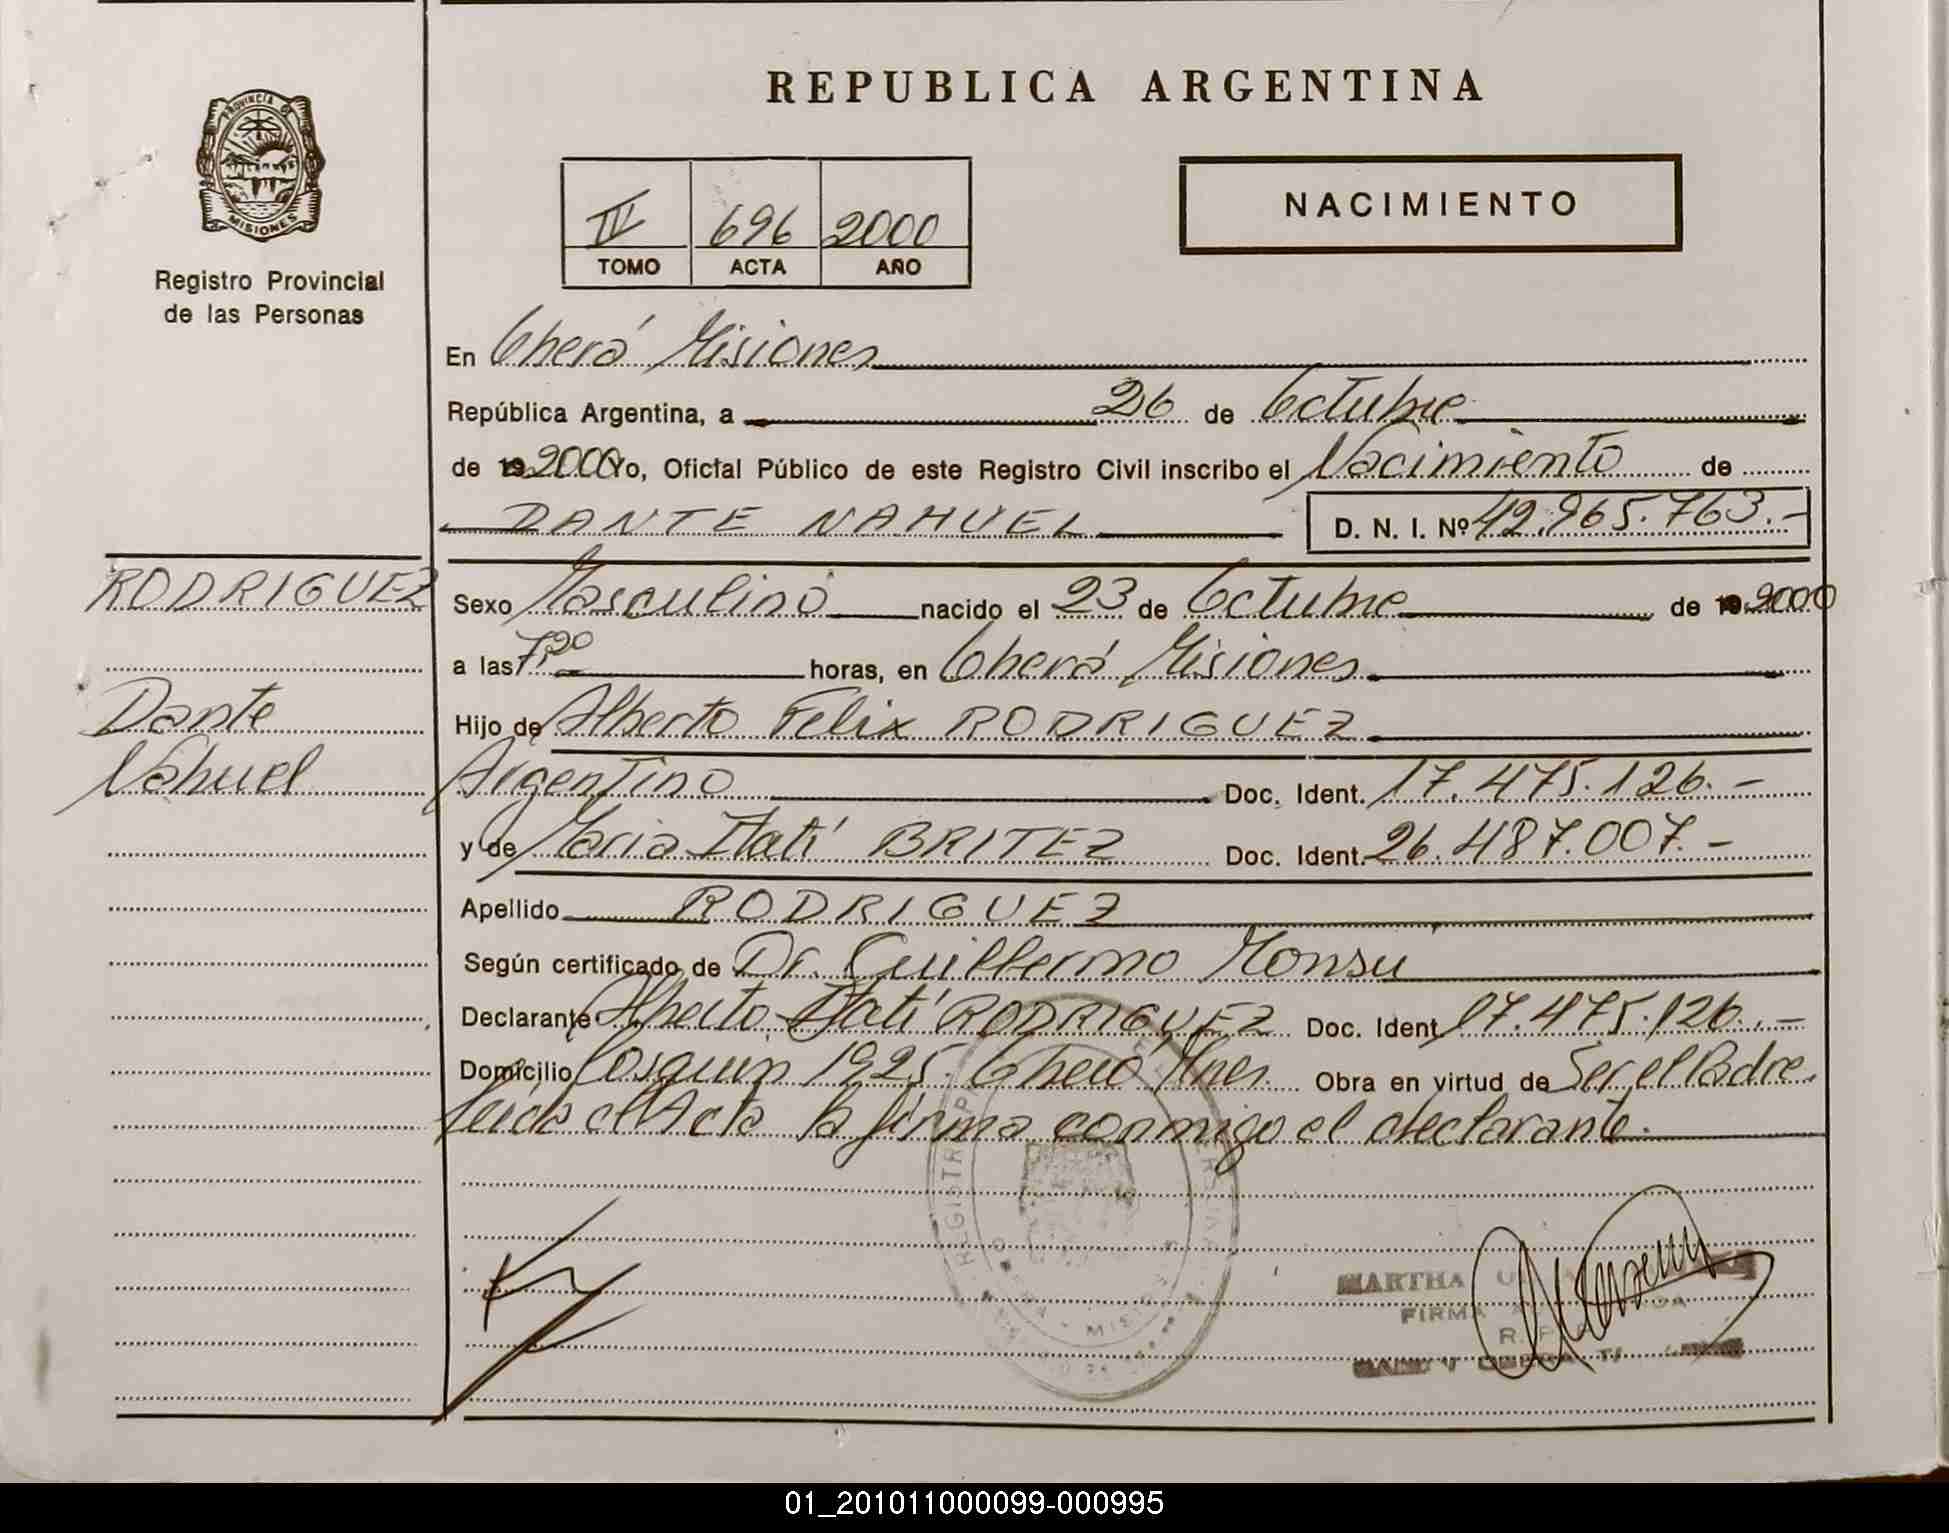 REPUBLICA ARGENTINA
PROVINCIA DE
MISIONES
Registro Provincial
de las Personas
IV 696 2000
TOMO ACTA AÑO
NACIMIENTO
En Oberá Misiones
República Argentina, a 26 de Octubre
de 19 2000 Yo, Oficial Público de este Registro Civil inscribo el Nacimiento de
DANTE NAHUEL D. N. I. Nº 42.965.763.-
RODRIGUEZ
Dante
Nahuel
Sexo Masculino nacido el 23 de Octubre de 19 2000
a las 7,20 horas, en Oberá Misiones
Hijo de Alberto Felix RODRIGUEZ
Argentino Doc. Ident. 17.475.126.-
y de Maria Itatí BRITEZ Doc. Ident. 26.487.007.-
Apellido RODRIGUEZ
Según certificado de Dr. Guillermo Monsu
Declarante Alberto Itatí RODRIGUEZ Doc. Ident. 17.475.126.-
Domicilio Cosquin 1925. Oberá Mnes. Obra en virtud de Ser el Padre.
Leida el Acta la firma conmigo el declarante.
MARTHA
FIRMA
01_201011000099-000995